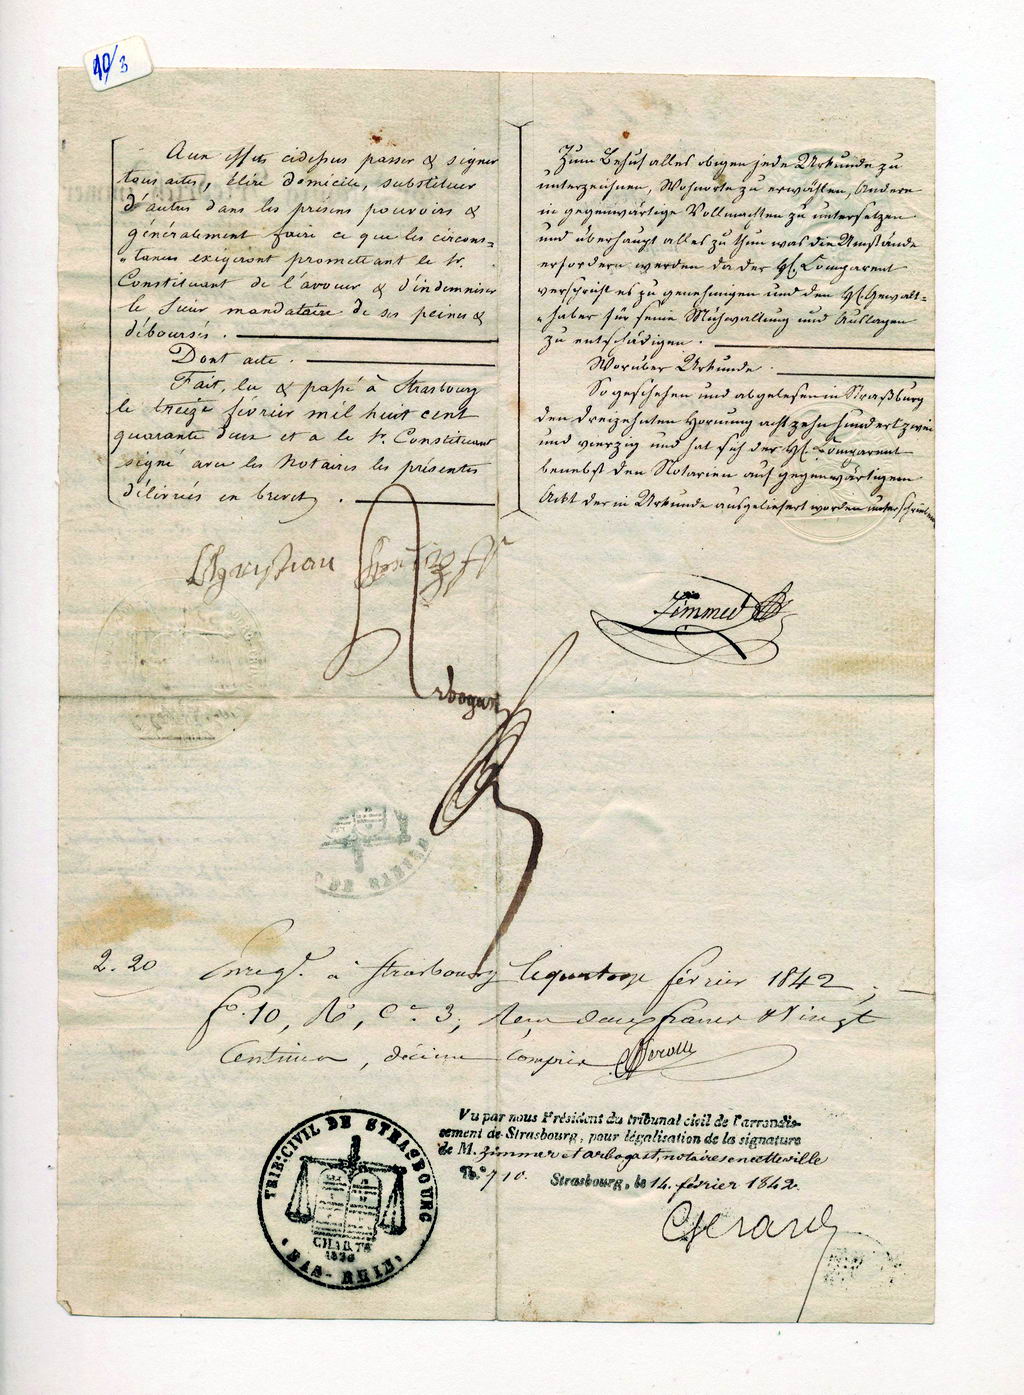 19/3
Aux effets cidessus passer & signer
tous actes, élire domicile, substituer
d'autres dans les présens pouvoirs &
généralement faire ce que les circons=
"tances exigeront promettant le Sr.
Constituant de l'avouer & d'indemniser
le Sieur mandataire de ses peines &
déboursés.
Dont acte.
Fait, lu & passé à Strasbourg
le treize février mil huit cent
quarante deux et a le Sr. Constituant
signé avec les Notaires les présentes
délivrées en brevet.
Zum Behuf alles obigen jede Urkunde zu
unterzeichnen, Wohnorte zu erwählen, Andere
in gegenwärtige Vollmachten zu untersetzen
und überhaupt alles zu thun was die Umstände
erfordern werden da der H. Comparent
verspricht es zu genehmigen und den H. Gewalt=
"haber für seine Mühwaltung und Auslagen
zu entschädigen.
Worüber Urkunde.
So geschehen und abgelesen in Straßburg
den dreizehnten Hornung acht zehn hundert zwei
und vierzig und hat sich der H. Comparent
benebst den Notarien auf gegenwärtigem
Akt der in Urkunde ausgeliefert worden unterschrieben
Christian
Zimmer
Arbogast
2.20 Enreg. à Strasbourg le quatorze février 1842,
f. 10, Ro, C. 3, Reçu deux francs & vingt
Centimes, décime compris
TRIB: CIVIL DE STRASBOURG
CHARTE
1830
BAS-RHIN
Vu par nous Président du tribunal civil de l'arrondis-
sement de Strasbourg, pour légalisation de la signature
de M. Zimmer et Arbogast, notaires en cette ville
710. Strasbourg, le 14. février 1842.
Gerard